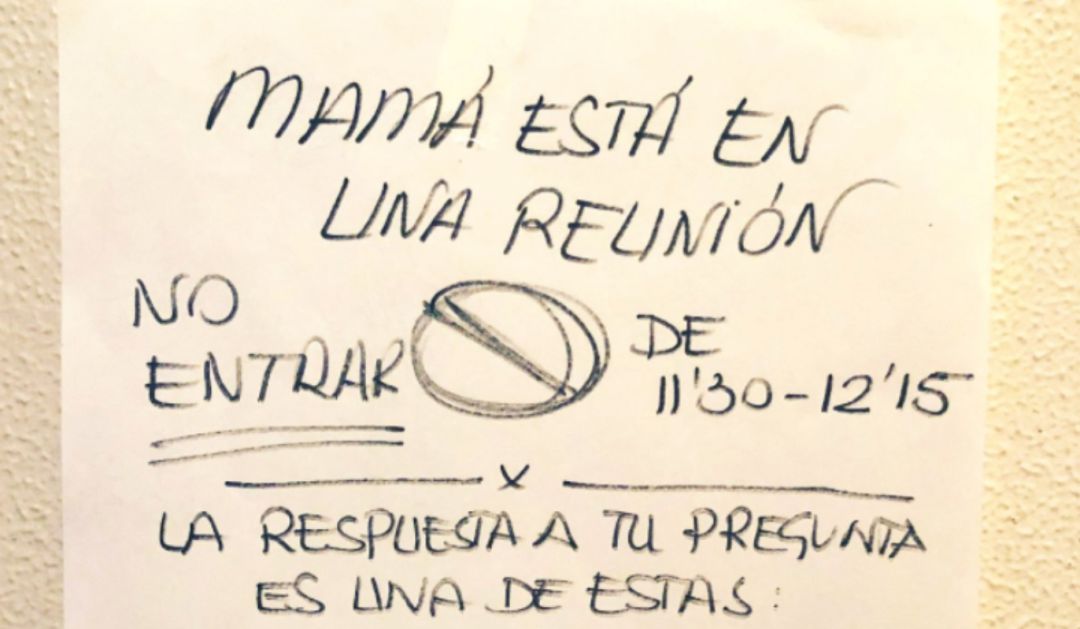 MAMÁ ESTÁ EN
UNA REUNIÓN
NO
ENTRAR
DE
11'30-12'15
x
LA RESPUESTA A TU PREGUNTA
ES UNA DE ESTAS: